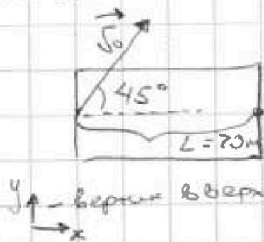 V₀
45°
L = 20m
y - верник вверх
x